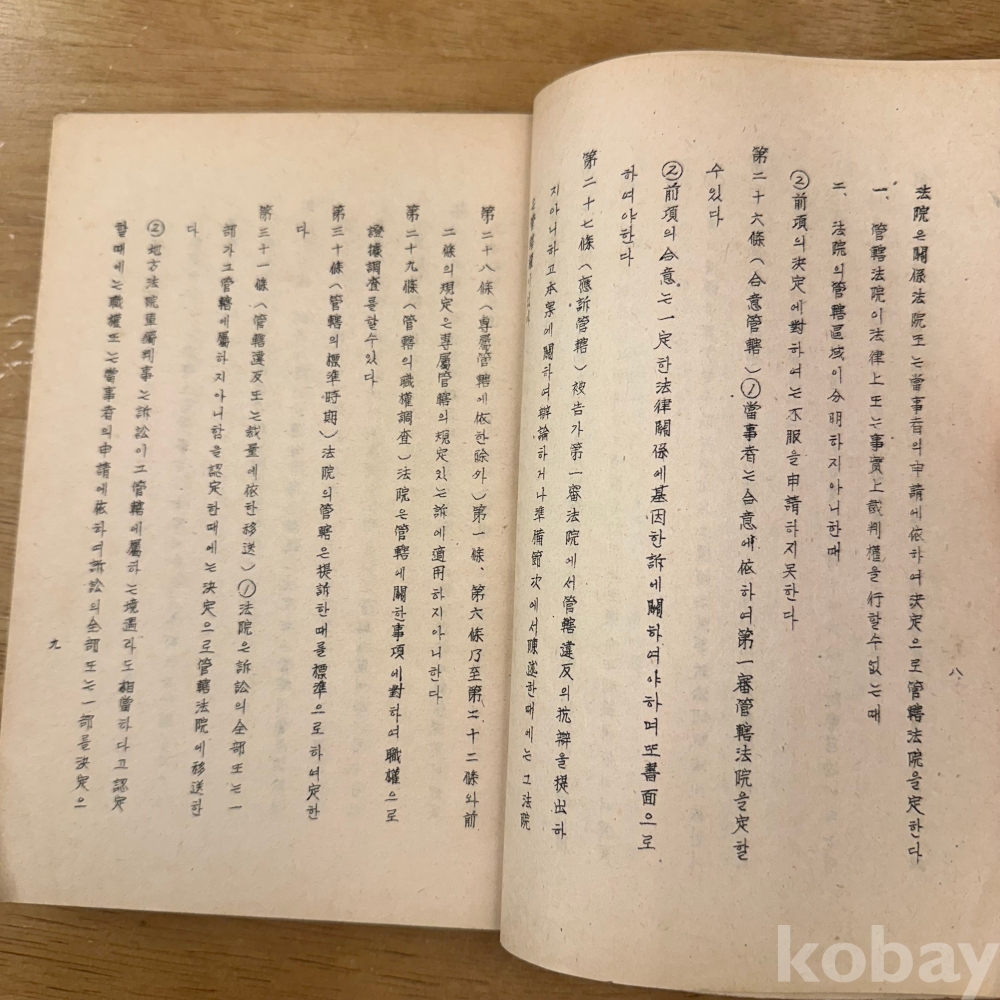 法院은關係法院또는當事者의申請에依하여決定으로管轄法院을定한다
一、管轄法院이法律上또는事實上裁判權을行할수없는때
二、法院의管轄區域이分明하지아니한때
②前項의決定에對하여는不服을申請하지못한다
第二十六條(合意管轄)①當事者는合意에依하여第一審管轄法院을定할
수있다
②前項의合意는一定한法律關係에基因한訴에關하여야하며또書面으로
하여야한다
第二十七條(應訴管轄)被告가第一審法院에서管轄違反의抗辯을提出하
지아니하고本案에關하여辯論하거나準備節次에서陳述한때에는그法院
八
第二十八條(專屬管轄에依한除外)第一條、第六條乃至第二十二條와前
二條의規定은專屬管轄의規定있는訴에適用하지아니한다
第二十九條(管轄의職權調査)法院은管轄에關한事項에對하여職權으로
證據調査를할수있다
第三十條(管轄의標準時期)法院의管轄은提訴한때를標準으로하여定한
다
第三十一條(管轄違反또는裁量에依한移送)①法院은訴訟의全部또는一
部가그管轄에屬하지아니함을認定한때에는決定으로管轄法院에移送한
다
②地方法院單獨判事는訴訟이그管轄에屬하는境遇라도相當하다고認定
할때에는職權또는當事者의申請에依하여訴訟의全部또는一部를決定으
九
kobay